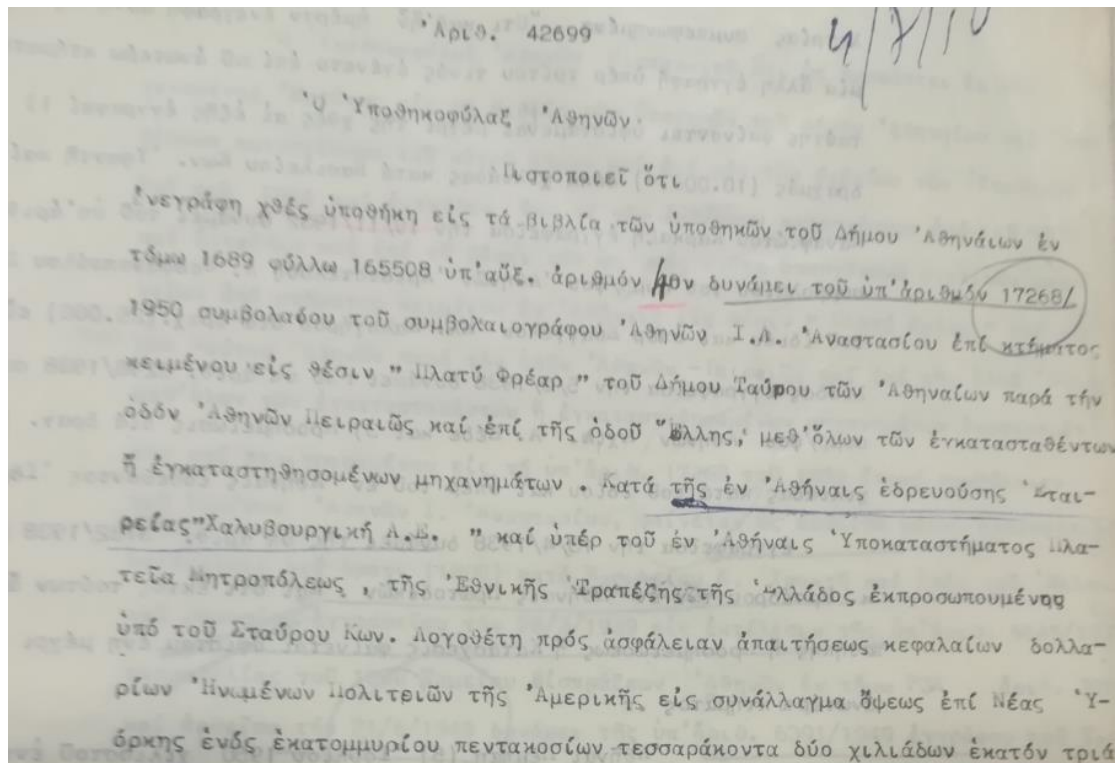 Ἀριθ. 42699
Ὁ Ὑποθηκοφύλαξ Ἀθηνῶν
Πιστοποιεῖ ὅτι
Ἐνεγράφη χθές ὑποθήκη εἰς τά βιβλία τῶν ὑποθηκῶν τοῦ Δήμου Ἀθηνάιων ἐν
τόμω 1689 φύλλω 165508 ὑπ'αὔξ. ἀριθμόν 4ον δυνάμει τοῦ ὑπ'ἀριθμόν 17268/
1950 συμβολαόου τοῦ συμβολαιογράφου Ἀθηνῶν Ι.Α. Ἀναστασίου ἐπί κτήματος
κειμένου εἰς θέσιν " Πλατύ Φρέαρ " τοῦ Δήμου Ταύρου τῶν Ἀθηναίων παρά τήν
ὁδόν Ἀθηνῶν Πειραιῶς καί ἐπί τῆς ὁδοῦ Ἕλλης, μεθ'ὅλων τῶν ἐγκατασταθέντων
ἤ ἐγκαταστηθησομένων μηχανημάτων . Κατά τῆς ἐν Ἀθήναις ἑδρευούσης Ἑται-
ρείας"Χαλυβουργική Α.Ε. " καί ὑπέρ τοῦ ἐν Ἀθήναις Ὑποκαταστήματος Πλα-
τεῖα Μητροπόλεως , τῆς Ἐθνικῆς Τραπέζης τῆς Ἑλλάδος ἐκπροσωπουμένης
ὑπό τοῦ Σταύρου Κων. Λογοθέτη πρός ἀσφάλειαν ἀπαιτήσεως κεφαλαίων δολλα-
ρίων Ἡνωμένων Πολιτειῶν τῆς Ἀμερικῆς εἰς συνάλλαγμα ὄψεως ἐπί Νέας Ὑ-
όρκης ἑνός ἑκατομμυρίου πεντακοσίων τεσσαράκοντα δύο χιλιάδων ἑκατόν τριά